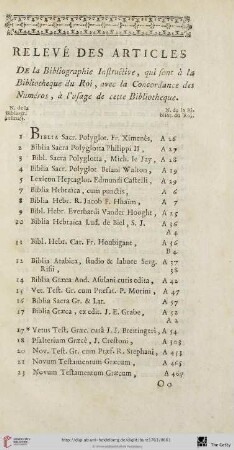 RELEVÉ DES ARTICLES
De la Bibliographie Instructive, qui sont à la
Bibliotheque du Roi, avec la Concordance des
Numéros, à l'usage de cette Bibliotheque.
N. de la
Bibliogr.
N. de la Bi-
du Roi.
1 BIBLIA Sacr. Polyglot. Fr. Ximenès, A 26
2 Biblia Sacra Polyglotta Philippi II, A 27
3 Bibl. Sacra Polyglotta, Mich. le Jay, A 28
4 Bibl. Sacr. Polyglot Briani Walton, A
5 Lexicon Heptaglot. Edmundi Castelli, A 29
7 Biblia Hebraica, cum punctis, A
8 Biblia Hebr. R. Jacob F. Hhaiim, A 7
9 Bibl. Hebr. Everhardi Vander Hooght, A
10 Biblia Hebraica Lud. de Biel, S. J. A
A 4
11 Bibl. Hebr. Car. Fr. Houbigant, A 36
B 4
12 Biblia Arabica, studio & labore Serg.
Risii, 38
14 Biblia Græca And. Asulani curis edita, A 42
15 Vet. Test. Gr. cum Præfat. P. Morini, A 47
16 Biblia Sacra Gr. & Lat. A 57
17 Biblia Græca, ex edit. J. E. Grabe, A 52
A 2
17* Vetus Test. Græc. curâ J. J. Breitingeri, A 54
18 Psalterium Græcè, J. Crestoni, A
20 Nov. Test. Gr. cum Præf. R. Stephani, A 455
22 Novum Testamentum Græcum, A 465
23 Novum Testamentum Græcum, A 467
Oo